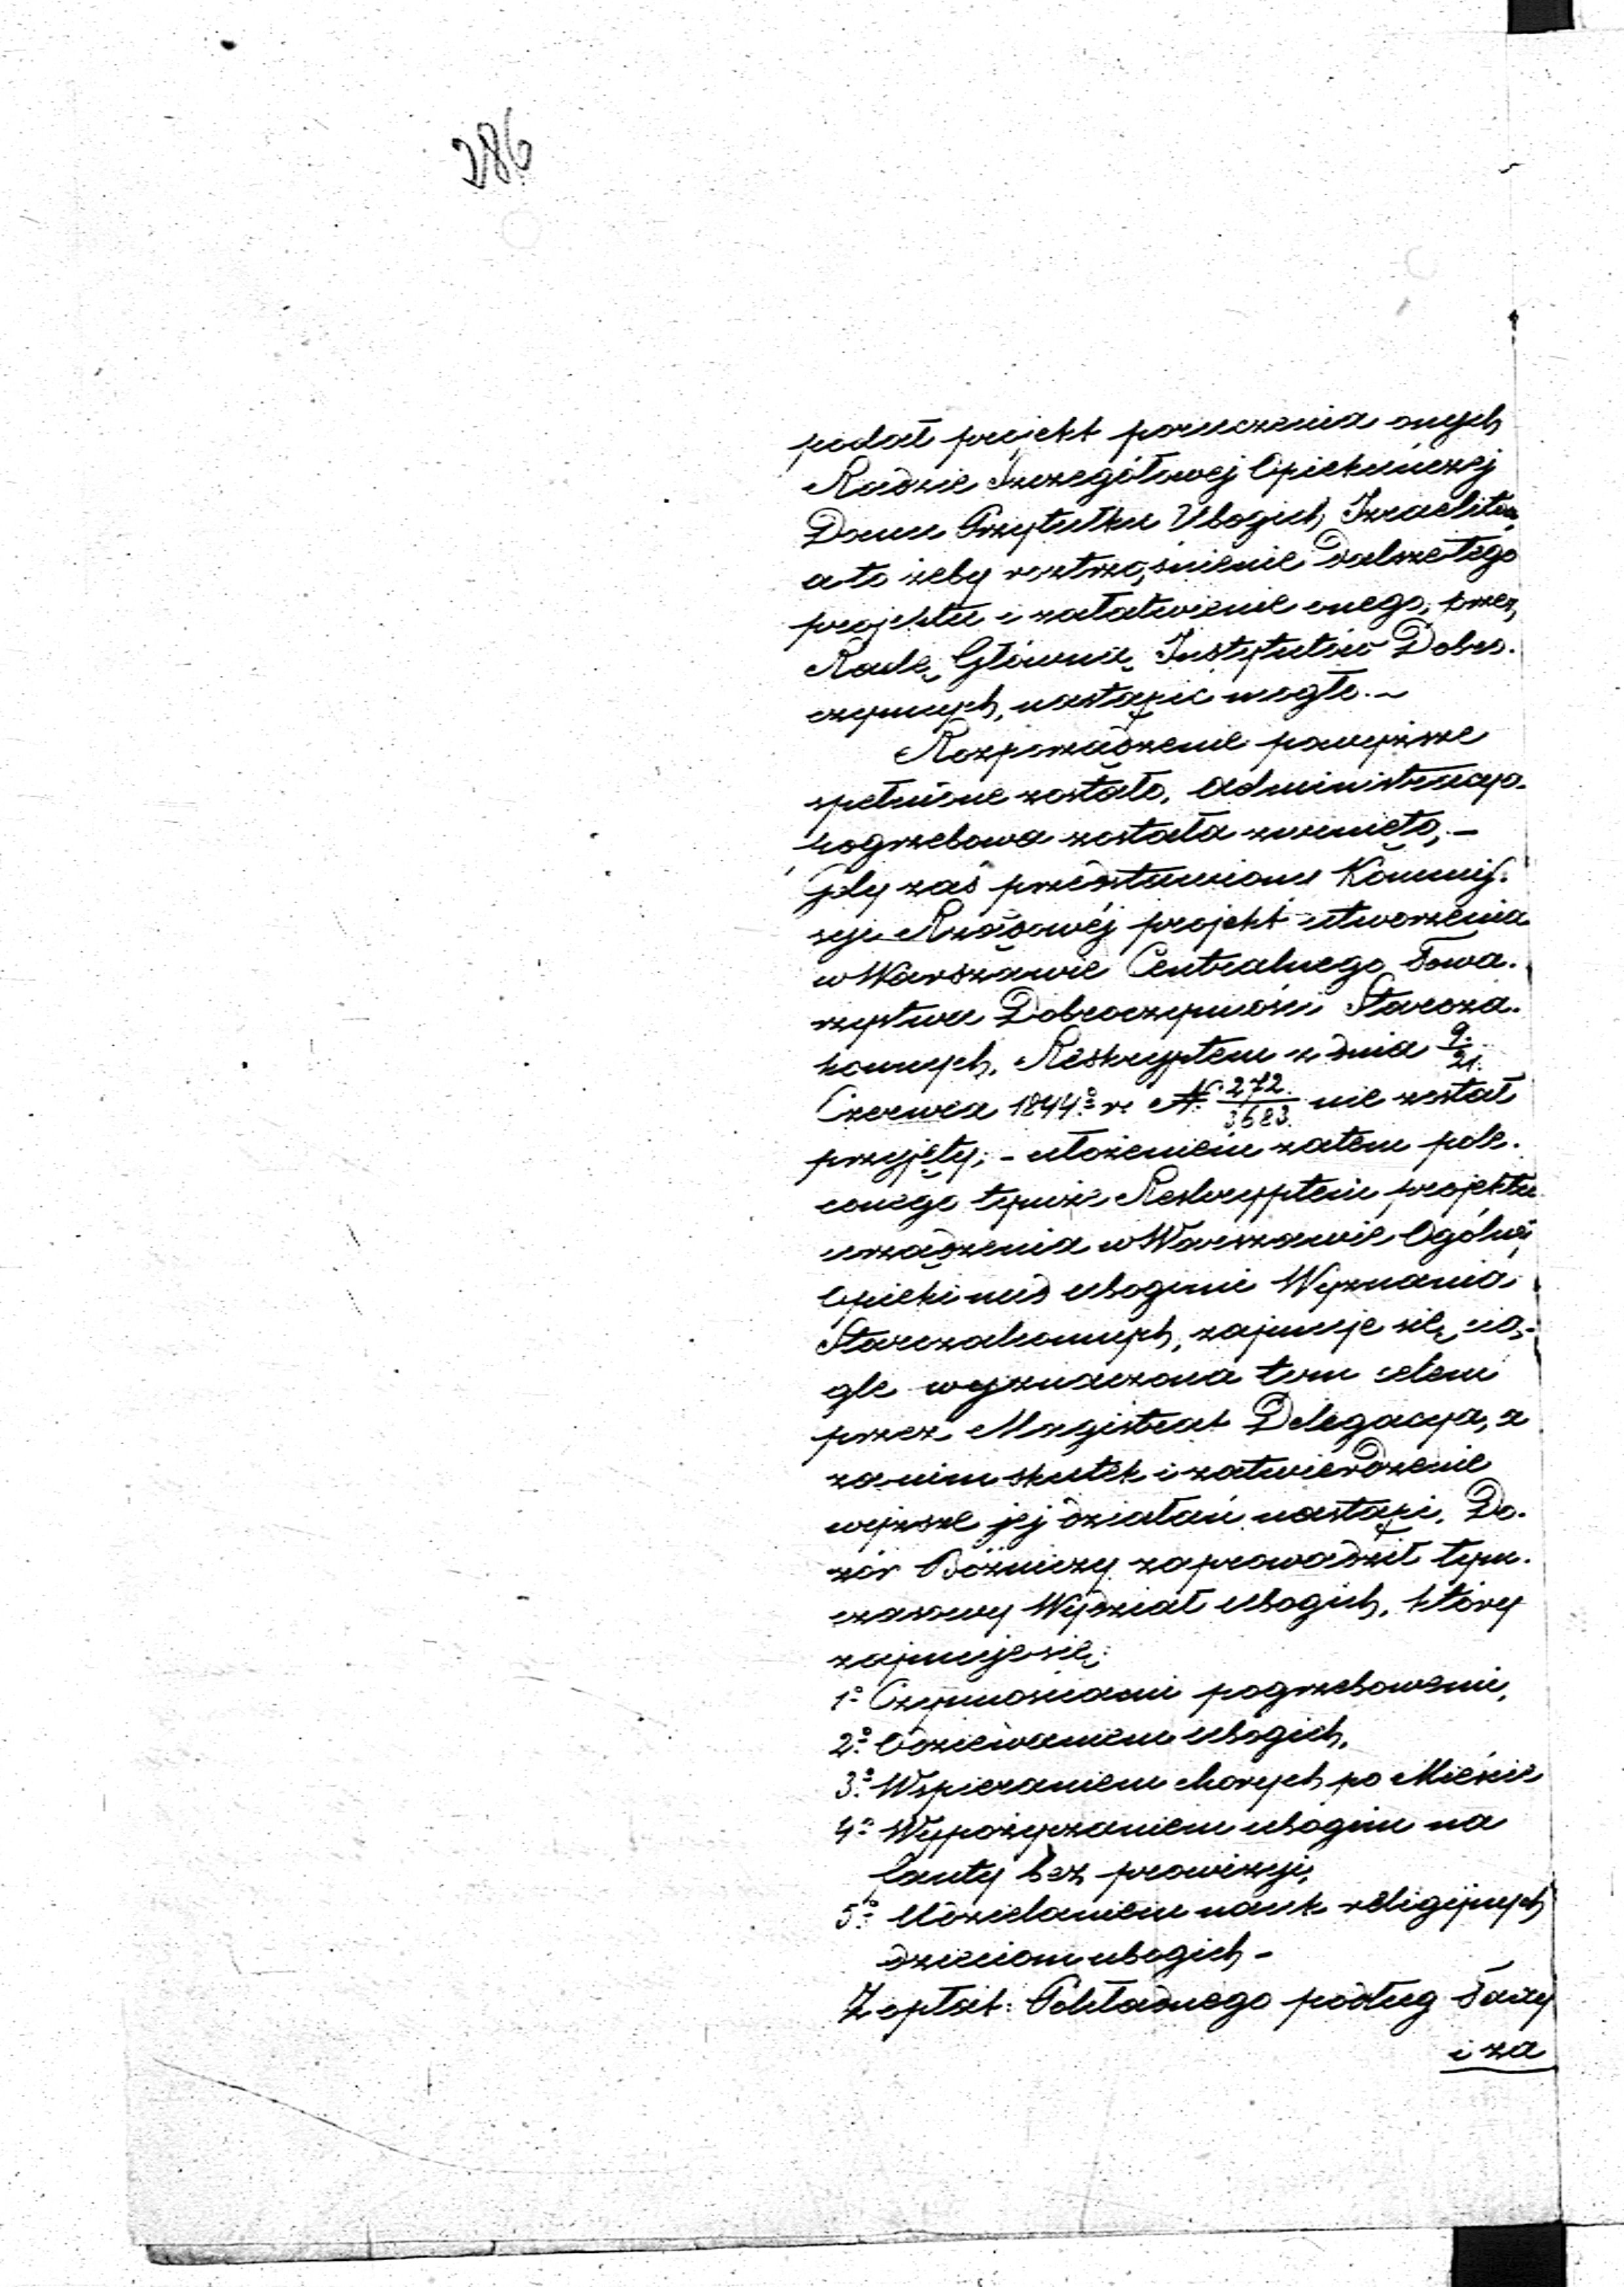 286
podał projekt poruczenia onych
Radzie Szczegółowej Opiekuńczej
Domu Przytułku Ubogich Izraelitów,
a to żeby roztrząśnienie dalsze tego
projektu i załatwienie onego, przez
Radę Główną Instytutów Dobro-
czynnych, nastąpić mogło. –
Rozporządzenie powyższe
spełnione zostało, Administracya
pogrzebowa została zwinięta, –
Gdy zaś przedstawiony Kommis-
syi Rządowéj projekt utworzenia
w Warszawie Centralnego Towa-
rzystwa Dobroczynności Staroza-
konnych, Reskryptem z dnia 9/21.
Czerwca 1844º r. Nº 272/3683 nie został
przyjęty; – ułożeniem zatem pole-
conego tymże Reskryptem projektu
urządzenia w Warszawie Ogólnej
Opieki nad ubogimi Wyznania
Starozakonnych, zajmuje się, cią-
gle wyznaczona tem celem
przez Magistrat Delegacya, a
zanim skutek i zatwierdzenie
wyższe jej działań nastąpi, Do-
zór Bóżniczy zaprowadził tym-
czasowy Wydział Ubogich, który
zajmuje się:
1º Czynnościami pogrzebowemi,
2º Odziewaniem Ubogich,
3º Wspieraniem chorych po Mieście
4º Wypożyczaniem ubogim na
fanty bez prowizyi,
5º Udzielaniem nauk religijnych
dzieciom ubogich –
Z opłat: Pokładnego podług Taxy
i za